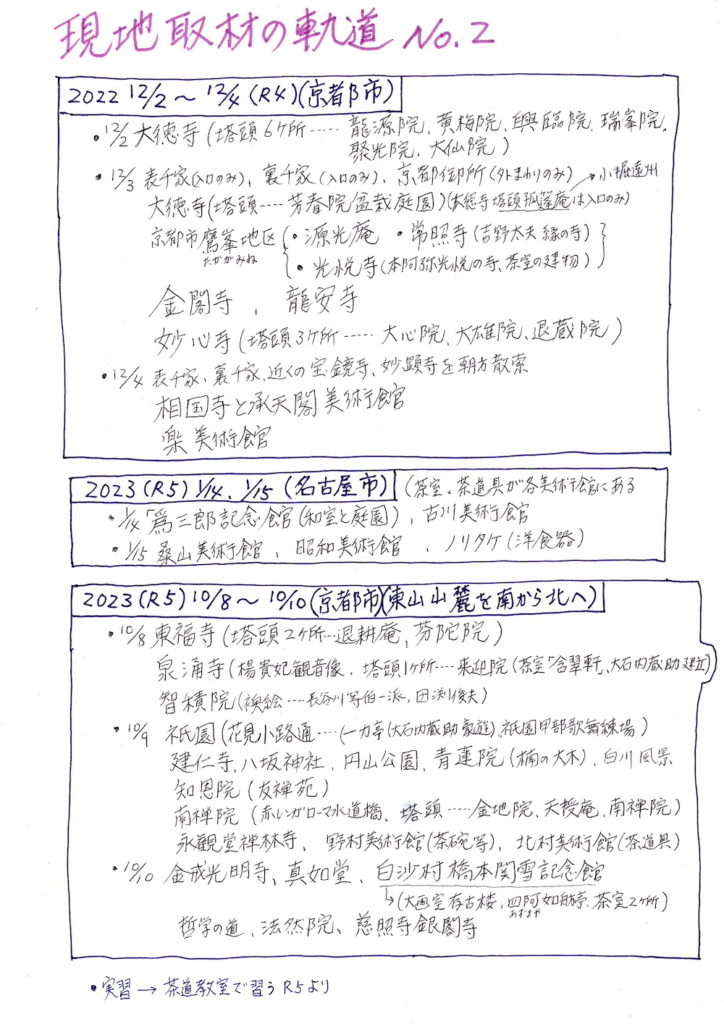 現地取材の軌道 No.2
2022 12/2～12/4(R4)(京都市)
・12/2 大徳寺(塔頭6ヶ所‥‥‥龍源院、黄梅院、興臨院、瑞峯院、
聚光院、大仙院)
・12/3 表千家(入口のみ)、裏千家(入口のみ)、京都御所(外まわりのみ) →小堀遠州
大徳寺(塔頭‥‥芳春院盆栽庭園)(大徳寺塔頭孤篷庵は入口のみ)
京都市鷹峯地区{・源光庵 ・常照寺(吉野太夫縁の寺)
たかがみね
{・光悦寺(本阿弥光悦の寺、茶室の建物)}
金閣寺、龍安寺
妙心寺(塔頭3ヶ所‥‥‥大心院、大雄院、退蔵院)
・12/4 表千家、裏千家、近くの宝鏡寺、妙顕寺を朝方散索
相国寺と承天閣美術館
楽美術館
2023(R5)1/14、1/15(名古屋市)(茶室、茶道具が各美術館にある
・1/14「爲三郎記念館(和室と庭園)、古川美術館
・1/15 桑山美術館、昭和美術館、ノリタケ(洋食器)
2023(R5)10/8～10/10(京都市)(東山山麓を南から北へ)
・10/8 東福寺(塔頭2ヶ所‥‥退耕庵、芬陀院)
泉涌寺(楊貴妃観音像、塔頭1ヶ所‥‥来迎院(茶室「含翠軒、大石内蔵助建立)
智積院(襖絵‥‥長谷川等伯一派、田渕俊夫)
・10/9 祇園(花見小路通‥‥(一力亭(大石内蔵助豪遊)、祇園甲部歌舞練場)
建仁寺、八坂神社、円山公園、青蓮院(楠の大木)、白川風景
知恩院(友禅苑)
南禅院(赤レンガローマ水道橋、塔頭‥‥‥金地院、天授庵、南禅院)
永観堂禅林寺、野村美術館(茶碗等)、北村美術館(茶道具)
・10/10 金戒光明寺、真如堂、白沙村橋本関雪記念館
→(大画室存古楼、四阿如舫亭、茶室2ヶ所)
あずまや
哲学の道、法然院、慈照寺銀閣寺
・実習→茶道教室で習うR5より